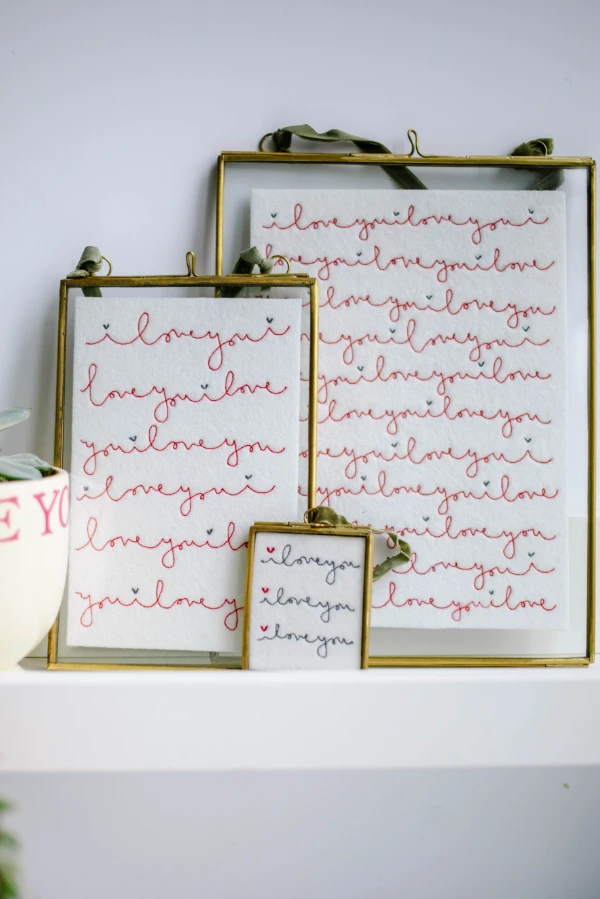 iloveyoui
loveyouilove
youiloveyou
iloveyoui
loveyouil
youilovey
iloveyouiloveyoui
loveyouiloveyouilove
loveyouiloveyou
loveyouiloveyoui
youiloveyouilove
loveyouiloveyou
loveyouiloveyoui
youiloveyouilove
youiloveyou
loveyoui
loveyouilove
iloveyou
iloveyou
iloveyou
E YO